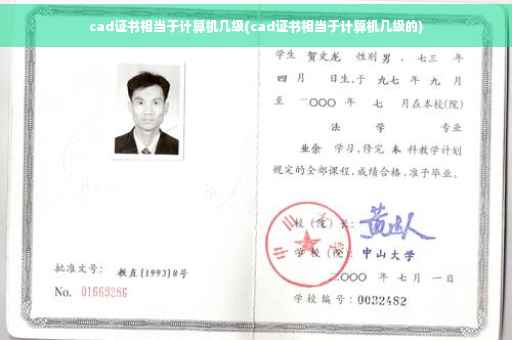 cad证书相当于计算机几级(cad证书相当于计算机几级的)
学生 贺文龙 性别 男 、七三 年
四 月 日生,于 九七 年 九 月
至 二〇〇〇 年 七 月在本校(院)
法 学 专业
业余 学习,修完 本 科教学计划
规定的全部课程,成绩合格,准予毕业。
校(院)长:
学校(院): 中山大学
二〇〇〇 年 七 月 一 日
学校编号:0032482
批准文号: 教直[1993]8号
No. 01669286